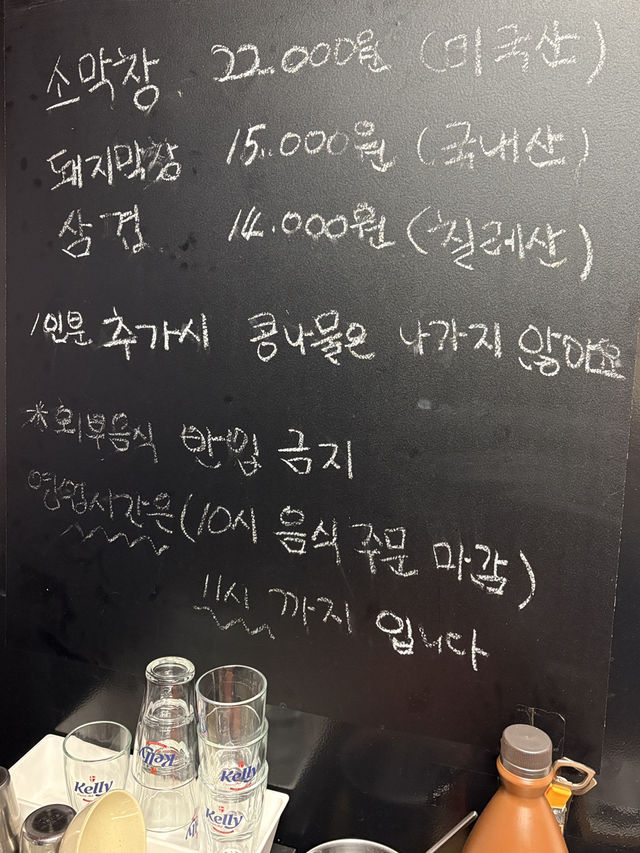 소막창. 22.000원 (미국산)
돼지막창 15.000원 (국내산)
삼겹 14.000원 (칠레산)
1인분 추가시 콩나물은 나가지 않아요
*외부음식 반입 금지
영업시간은 (10시 음식 주문 마감)
11시 까지 입니다
Kelly
Kelly
Kelly
Kelly